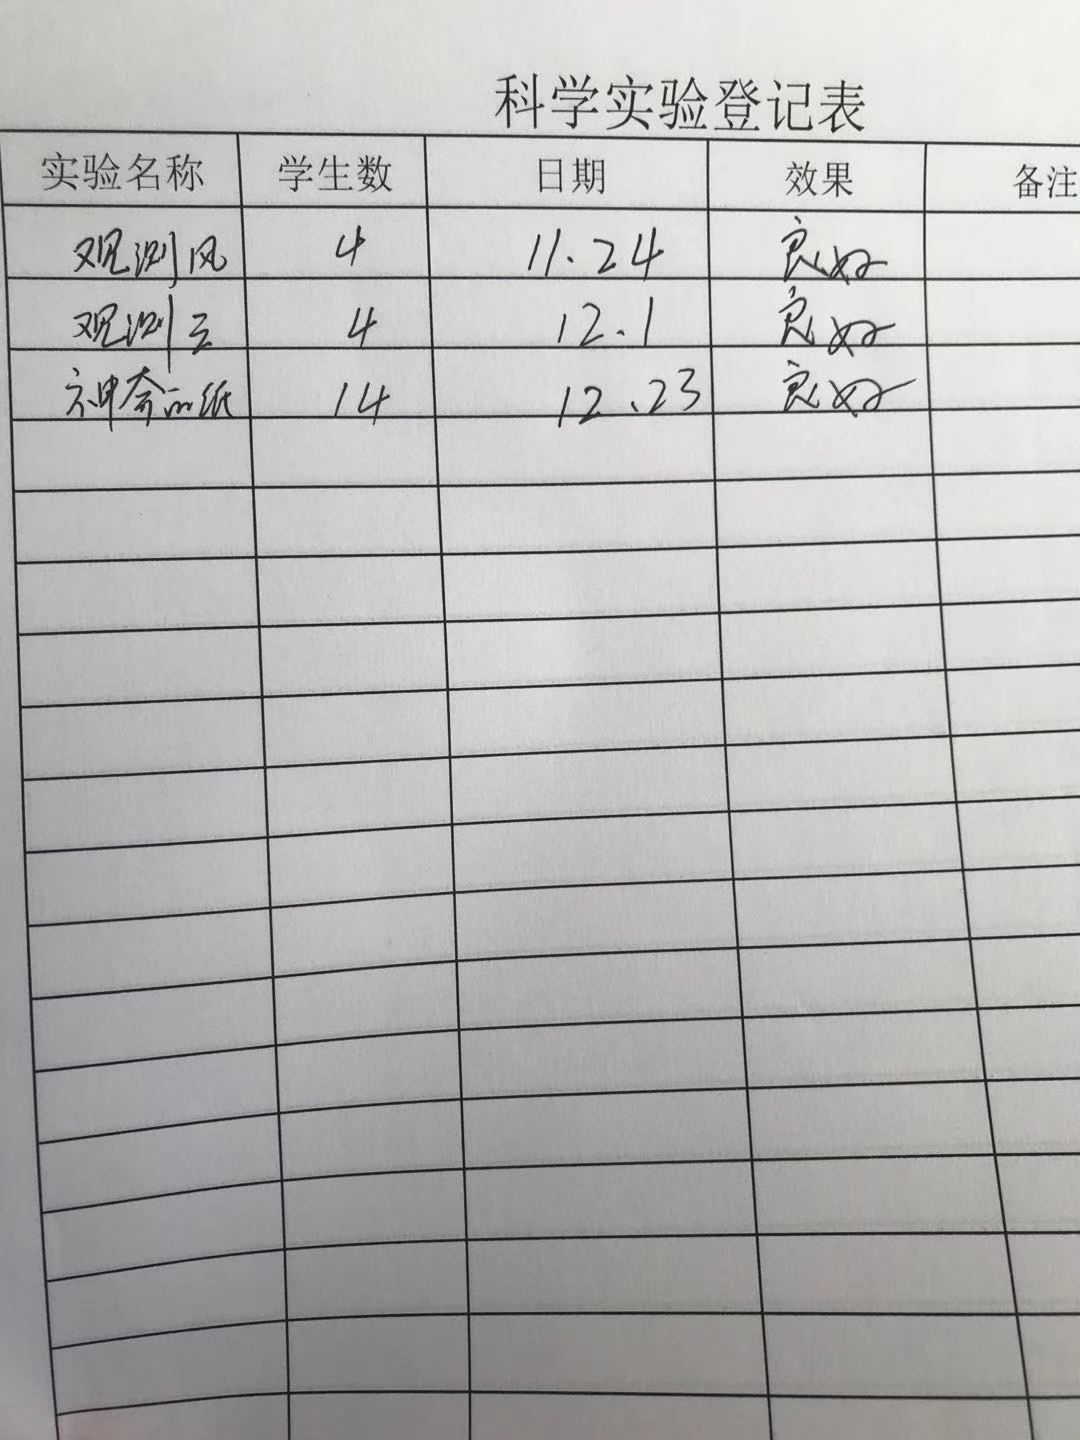 科学实验登记表
实验名称 学生数 日期 效果 备注
观测风 4 11.24 良好
观测云 4 12.1 良好
神奇的纸 14 12.23 良好